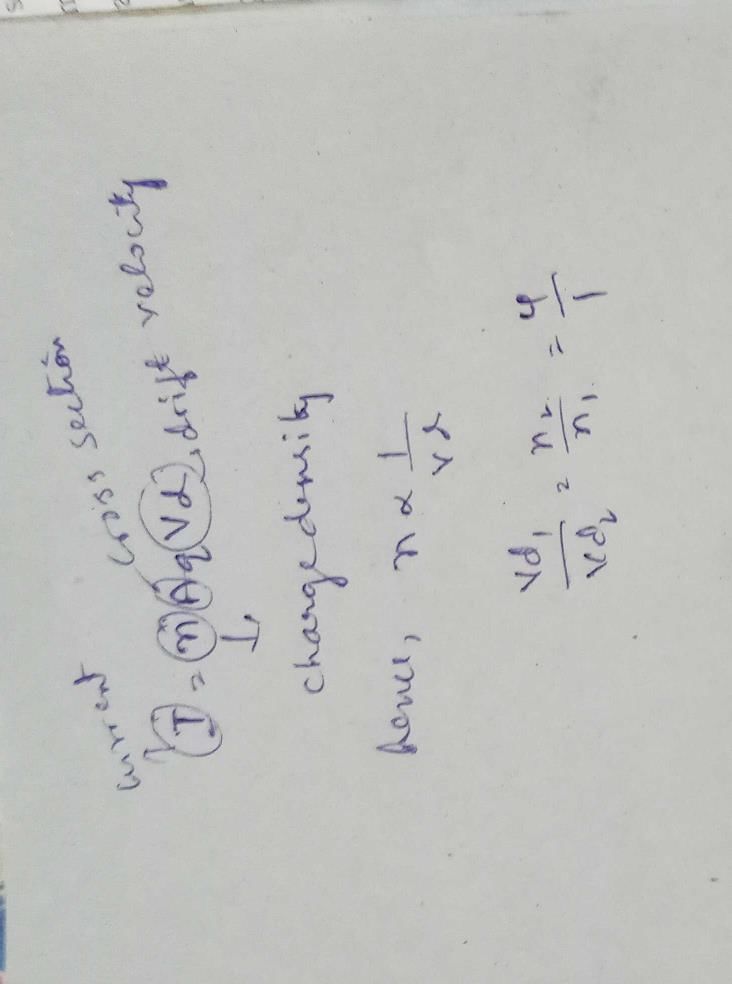 current cross section
I = nAqVd, drift velocity
charge density
hence, n ∝ 1/vd
Vd₁/Vd₂ = n₂/n₁ = 4/1